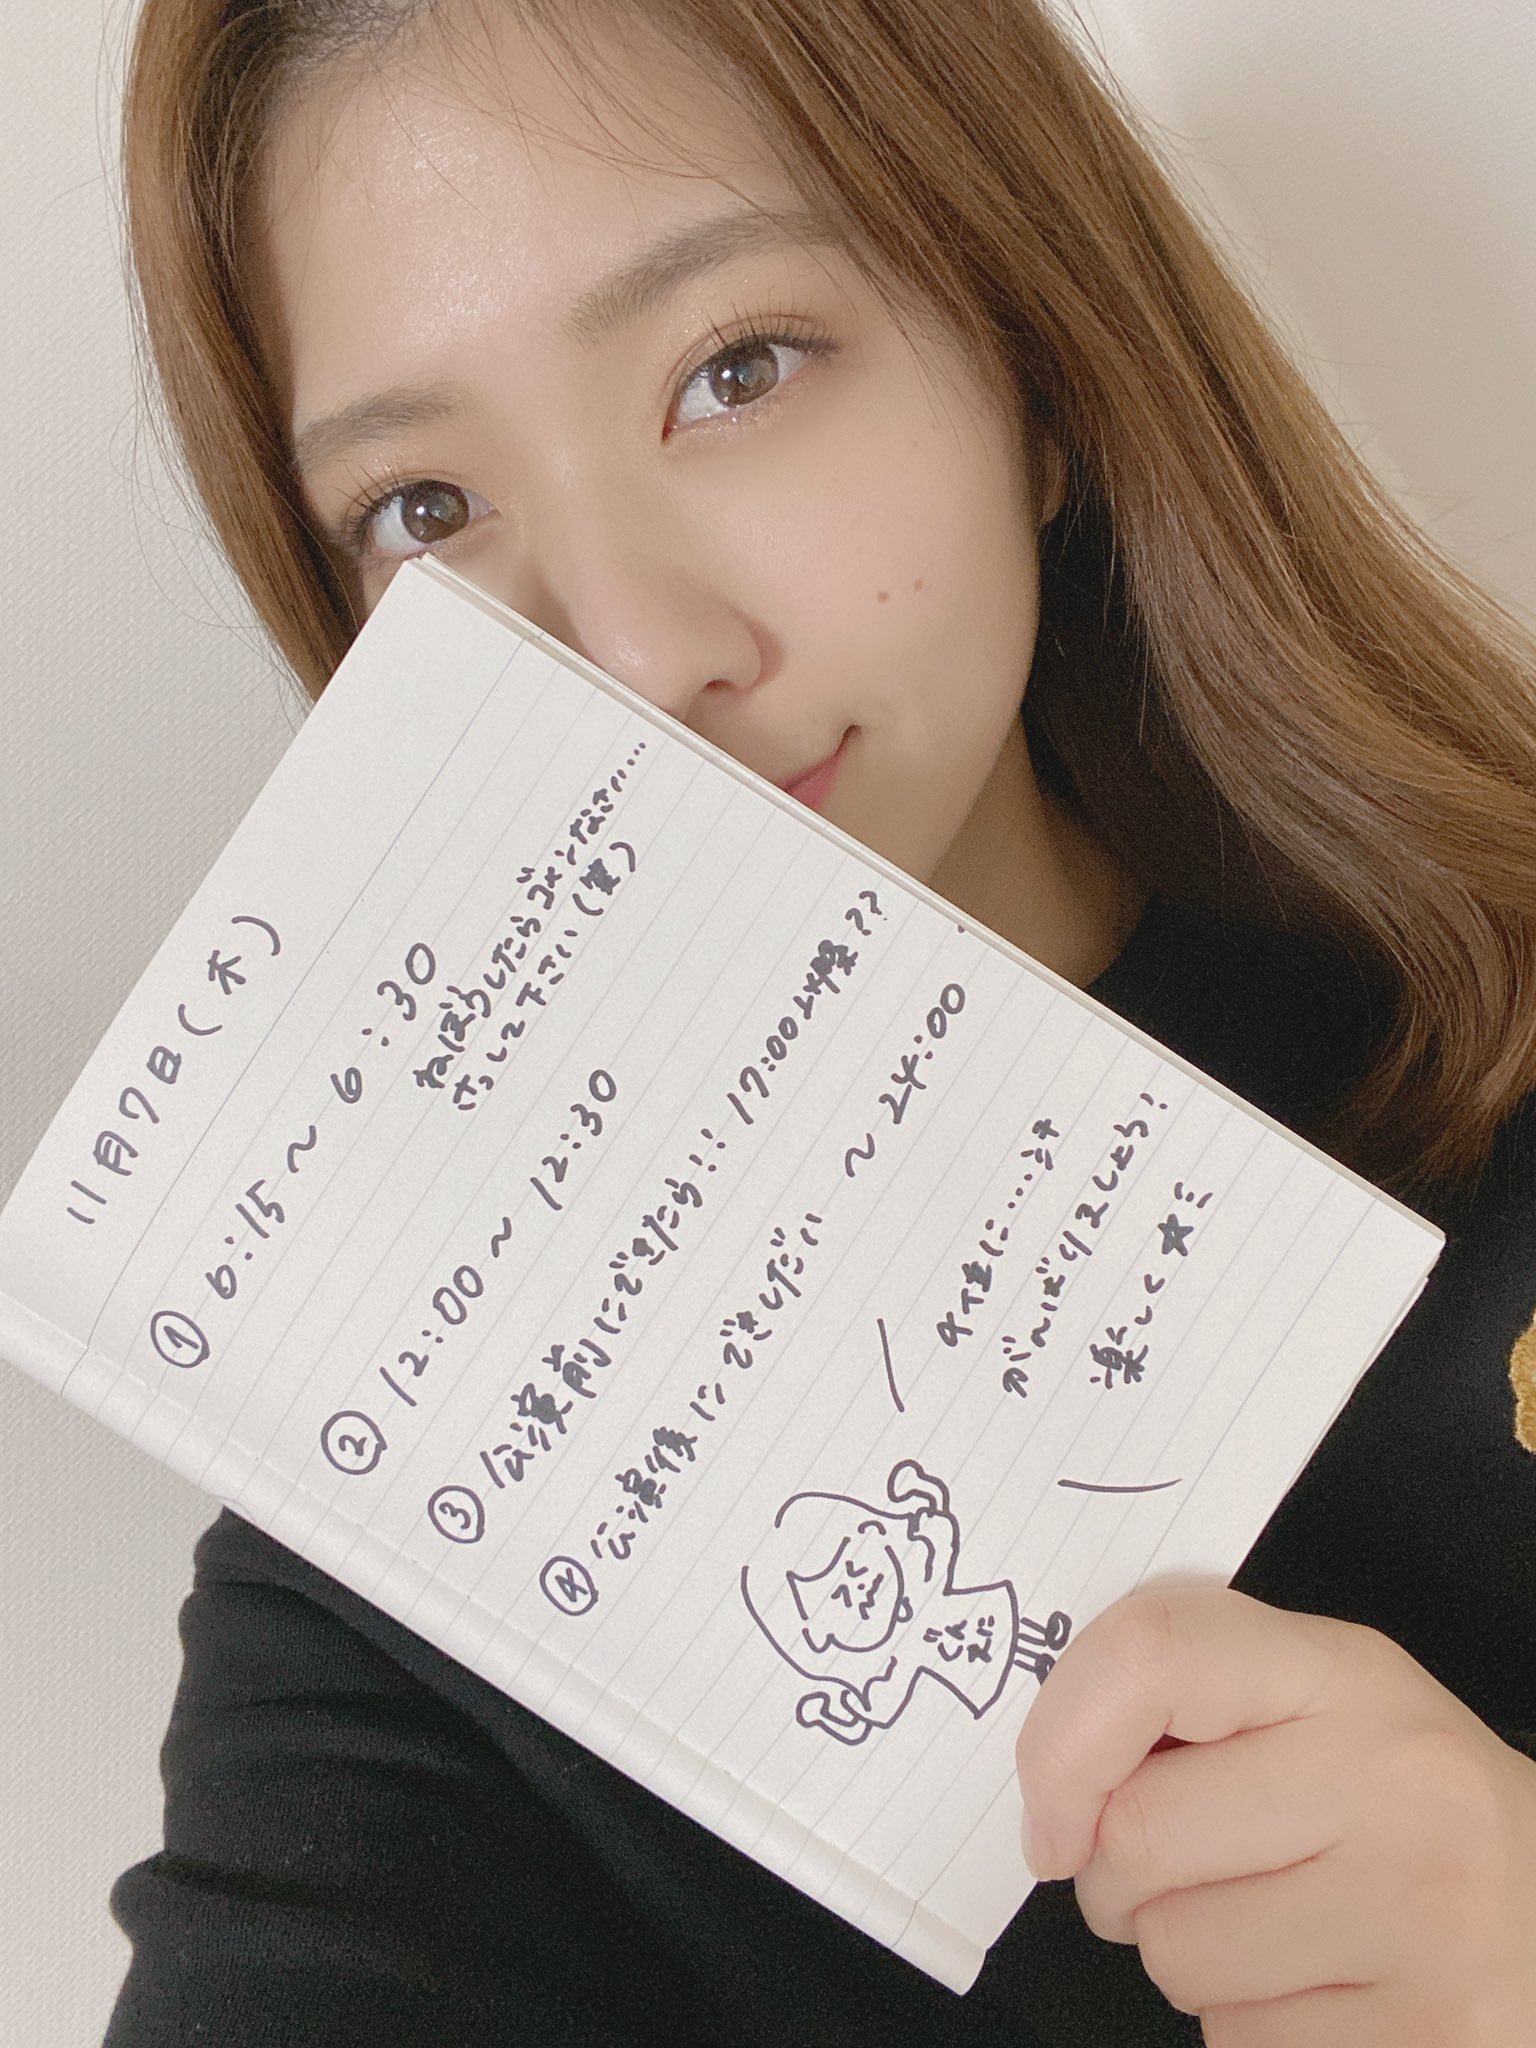 11月7日(木)
① 6:15〜6:30
ねぼうしたらゴメンなさい…
さっして下さい(笑)
② 12:00〜12:30
③ 公演前にできたら!! 17:00以降??
④ 公演後にできしだい 〜24:00
ケイ性に……シナ
が〜んばりましょう!
楽しく☆ミ